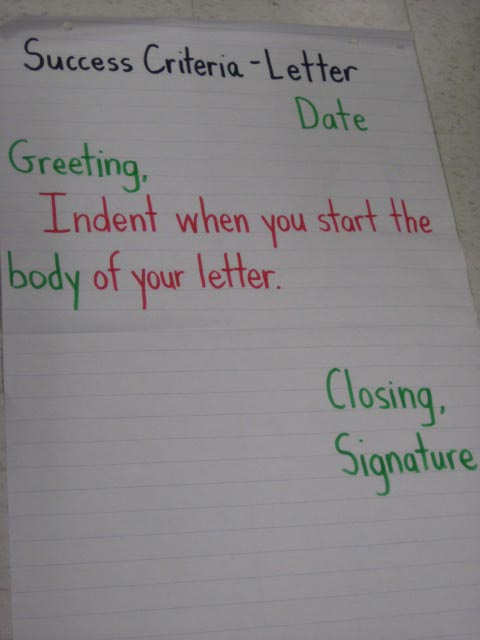 Success Criteria - Letter
Date
Greeting,
Indent when you start the
body of your letter.
Closing,
Signature